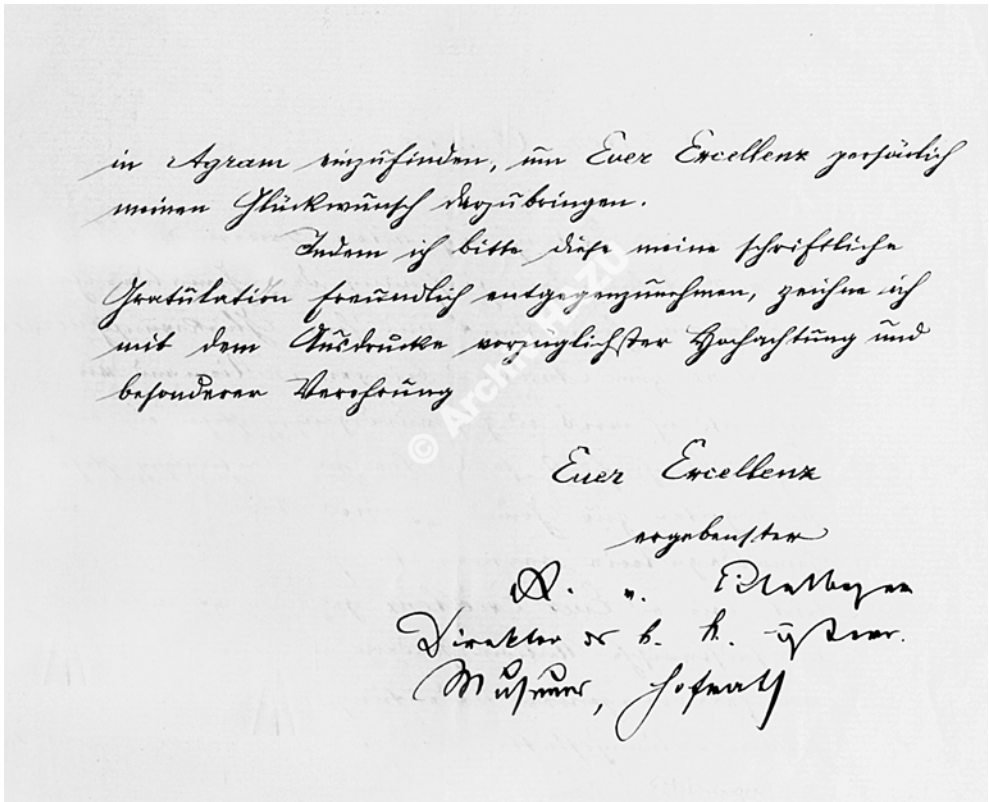 in Agram einzufinden, um Euer Excellenz persönlich
meinen Glückwunsch darzubringen.
Indem ich bitte diese meine schriftliche
Gratulation freundlich entgegenzunehmen, zeichne ich
mit dem Ausdrucke vorzüglichster Hochachtung und
besonderer Verehrung
Euer Excellenz
ergebenster
v.
Direktor des k. k. österr.
Museums, Hofrath
© Archiv HAZU